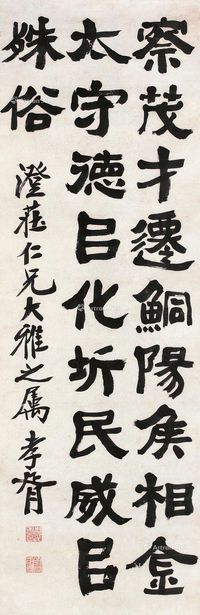 察茂才遷鮦陽侯相金
太守德㠯化圻民威㠯
殊俗
澄莊仁兄大雅之屬 孝胥